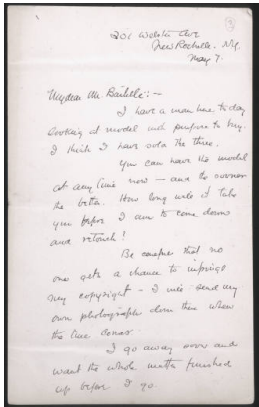 301 Webster Ave
New Rochelle. N.Y.
May 7.
My dear Mr. :—
I have a man here today
looking at model with purpose to buy.
I think I have sold the three.
You can have the model
at any time now — and the sooner
the better. How long will it take
you before I am to come down
and retouch?
Be careful that no
one gets a chance to infringe
my copyright — I will send my
own photographer down there when
the time comes.
I go away soon and
want the whole matter finished
up before I go.